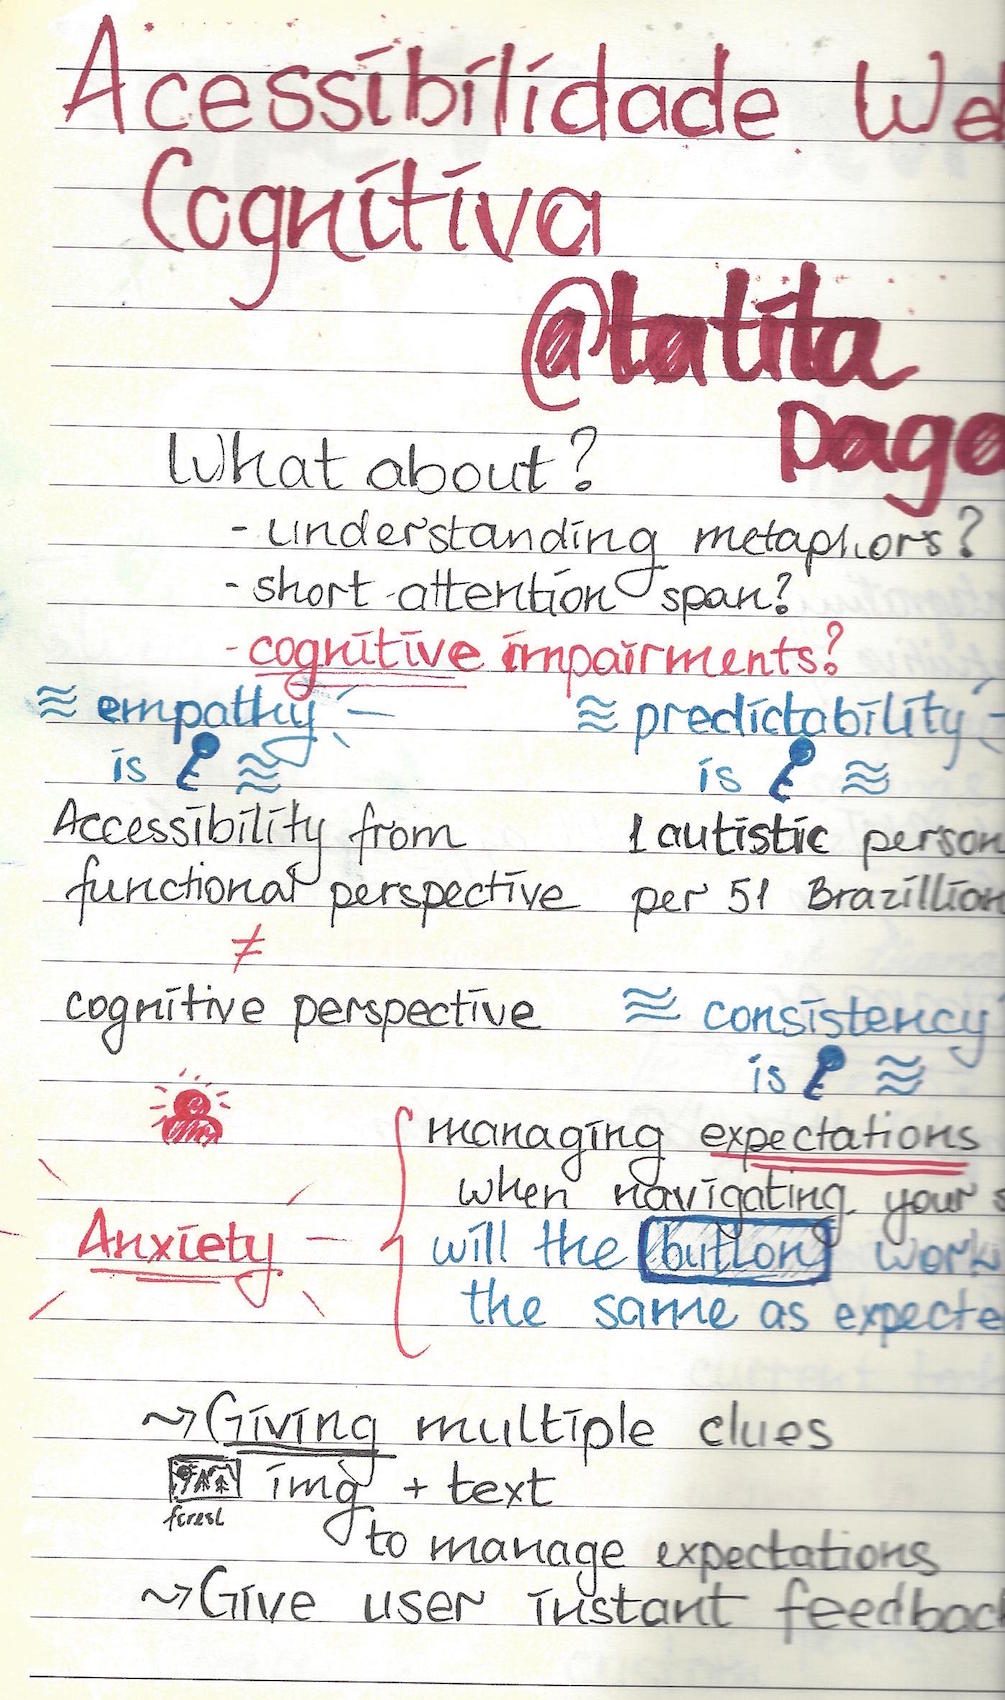 Acessibilidade We
Cognitiva
@tatita
pago
What about?
- understanding metaphors?
- short attention span?
- cognitive impairments?
≈ empathy
is ≈
≈ predictability
is ≈
Accessibility from
functional perspective
≠
cognitive perspective
1 autistic person
per 51 Brazillian
≈ consistency
is ≈
Anxiety
managing expectations
when navigating your s
will the button work
the same as expecte
~> Giving multiple clues
img + text
forest
to manage expectations
~> Give user instant feedbac